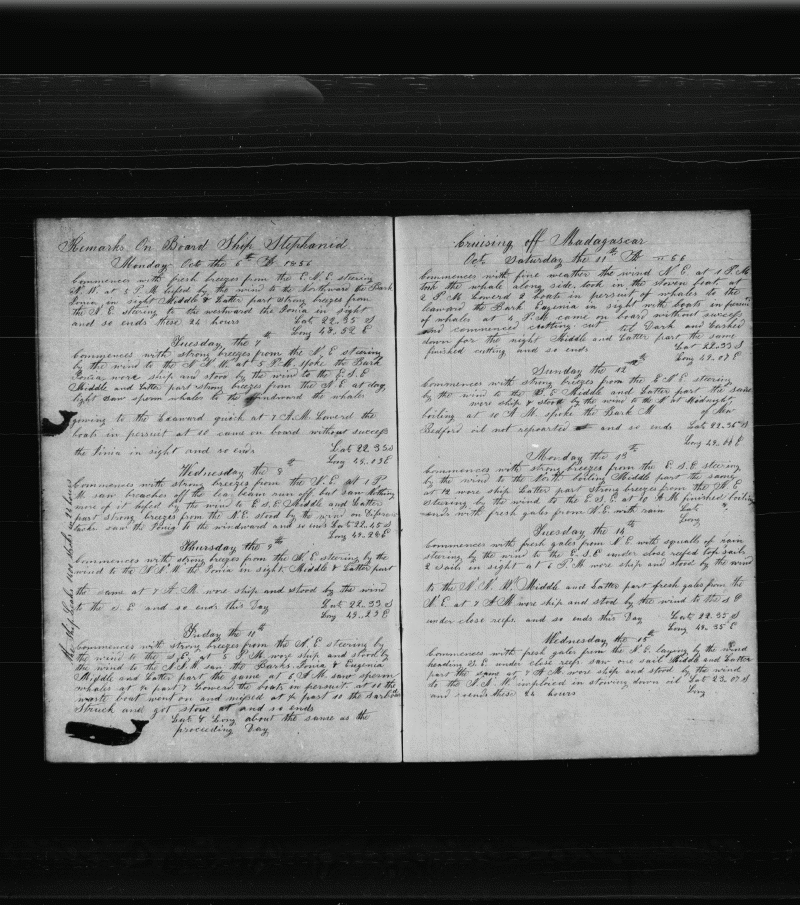 Remarks On Board Ship Stephanid
Monday Oct the 6th 1856
Commences with fresh breezes from the E.N.E. steering
N.W. at 5 P.M. lufed by the wind to the Northward the Bark
Ionia in sight Middle & Latter part strong breezes from
the N.E. steering to the westward the Ionia in sight
and so ends these 24 hours Lat 22..35 S
Long 48..52 E
Tuesday, the 7th
Commences with strong breezes from the N.E steering
by the wind to the N.N.W. at 5 P.M. spoke the Bark
Ionia wore ship and stood by the wind to the E.S.E
Middle and Latter part strong breezes from the N.E at day
light saw sperm whales to the windward the whales
going to the Leaward quick at 7 A.M. Lowerd the
boats in persuit at 10 came on board without success
the Ionia in sight and so ends Lat 22..33 S
Long 49..03 E
Wednesday the 8th
Commences with strong breezes from the N.E. at 1 P
M. saw breaches off the lee beam run off but saw Nothing
more of it lufed by the wind to E.S.E Middle and Latter
part strong breezes from the N.E. stood by the wind on
saw the Ionia to the windward and so ends Lat 22..45 S
Long 49..28 E
Thursday the 9th
Commences with strong breezes from the N.E steering by the
wind to the N.N.W. the Ionia in sight. Middle & Latter part
the same at 7 A.M. wore ship and stood by the wind
to the S.E. and so ends this Day Lat 22..33 S
Long 49..23 E
Friday the 10th
Commences with strong breezes from the N.E. steering by
the wind to the S.E. at 5 P.M. wore ship and stood by
the wind to the N.N.W saw the Barks Ionia & Eugenia
Middle and Latter part the same at 6 A.M saw sperm
whales at ¼ past 7 Lowerd the boats in persuit. at 10 the
waste boat went on and missed at ¼ past 10 the larbord
Struck and got stove at and so ends
Lat & Long about the same as the
proceeding Day
the ship Leaks 1100 stroks in 24 hours
Cruising off Madagascar
Oct. Saturday the 11th 56
Commences with fine weather the wind N.E at 1 P.M
took the whale along side took in the stoven boat at
2 P.M. Lowerd 2 boats in persuit of whales to the
Leaward the Bark Eugenia in sight with boats in persuit
of whales at 5 P.M came on board without success
and commenced cutting cut til Dark and lashed
down for the night Middle and Latter part the same
finished cutting and so ends Lat 22..33 S
Long 49..07 E
Sunday the 12th
Commences with strong breezes from the E.N.E. steering
by the wind to the S.E Middle and Latter part the same
wore ship & stood by the wind to the N at Midnight,
boiling at 10 A.M. spoke the Bark M of New
Bedford oil not reparted and so ends Lat 22..36 S
Long 49..06 E
Monday the 13th
Commences with strong breezes from the E.S.E steering
by the wind to the North boiling Middle part the same
at 12 wore ship Latter part strong breezes from the N.E
steering by the wind to the E.S.E at 10 A.M finished boiling
ends with fresh gales from N.E. with rain Lat
Long
Tuesday the 14th
Commences with fresh gales from N.E with squalls of rain
steering by the wind to the E.S.E under close reefed top sails
2 sails in sight at 6 P.M wore ship and stood by the wind
to the N.N.W. Middle and Latter part fresh gales from the
N.E. at 7 A.M wore ship and stod by the wind to the S.E
under close reefs. and so ends this Day Lat 22..35 S
Long 49..35 E
Wednesday the 15th
Commences with fresh gales from the N.E. laying by the wind
heading S.E under close reefs saw one sail Middle and Latter
part the same at 7 A.M wore ship and stood by the wind
to the N.N.W imploied in stowing down oil Lat 23..07 S
and so ends these 24 hours Long